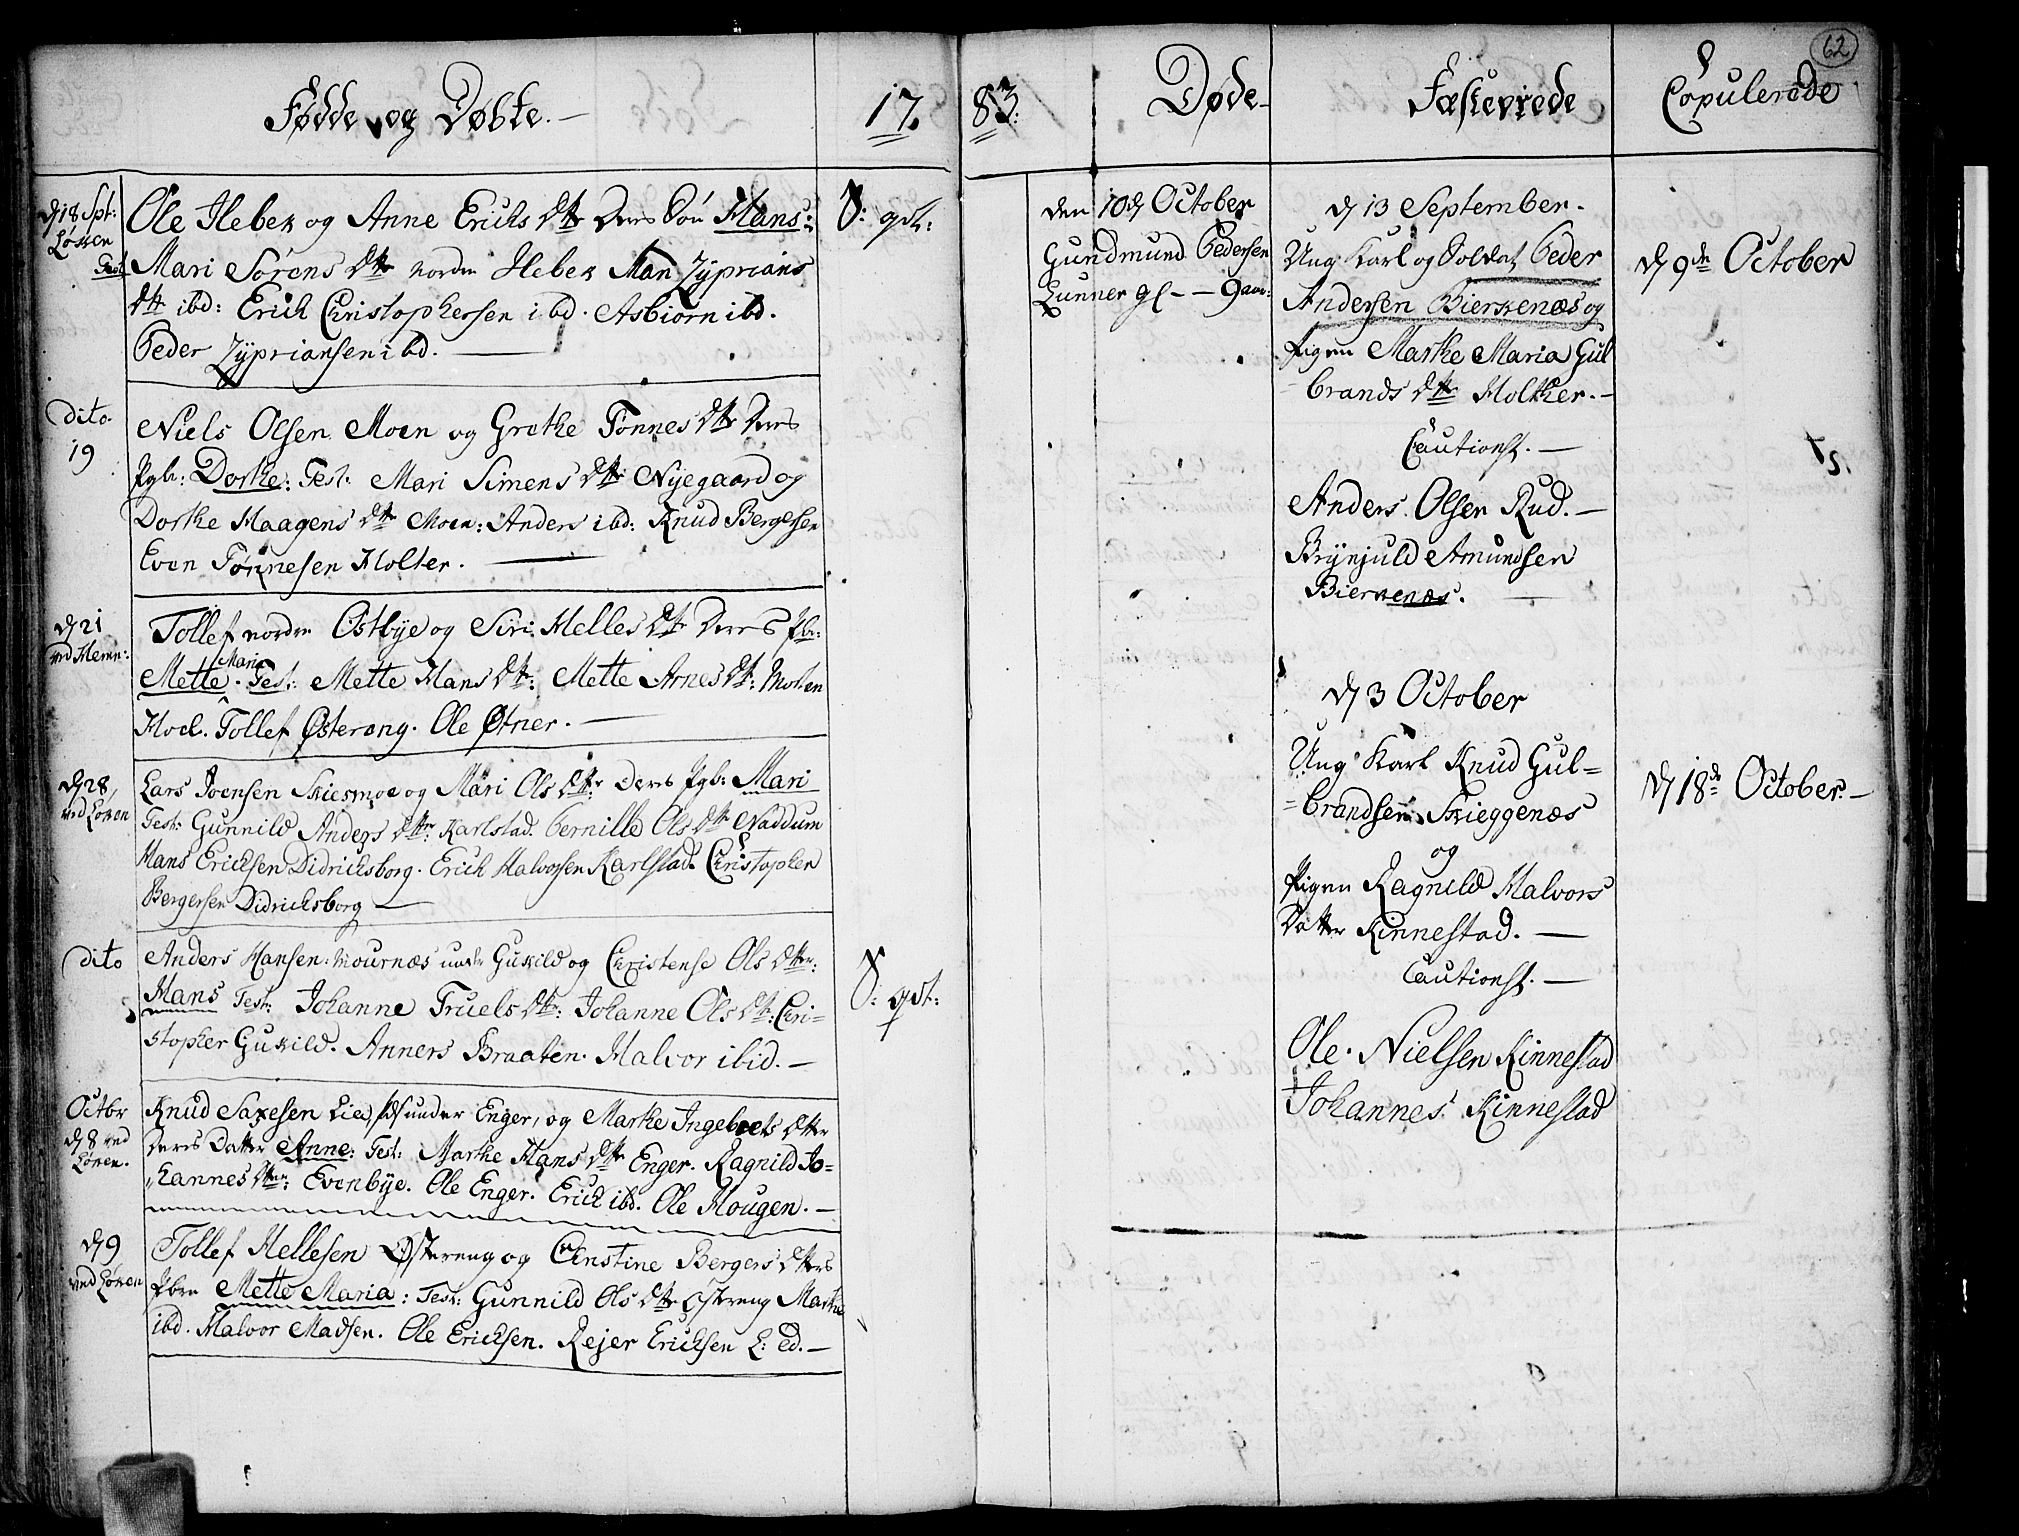 Fødde og Døbte.
17
83:
Døde
Fæstevrede
Copulerede
62
d 18 Spt:
Løken
Test
Ole Heber og Anne Erichs dtr Deres Søn Hans:
Mari Sørens dtr nordre Heber Mari Zyprians
dtr ibd: Erich Christophersen ibd. Asbiørn ibd.
Peder Zypriansen ibd.
dito
19
Niels Olsen Moen og Grethe Tønnes dtr Deres
Pgb: Dorthe: Test: Mari Simens dtr Nyegaard og
Dorthe Haagens dtr Moen: Anders ibd: Knud Bergersen
Even Tønnesen Holter.
d 21
ved Hemn:
Tollef nordre Ostbye og Siri Helles dtr Deres Pbr:
Mette Maria. Test: Mette Hans dtr: Mette Arnes dtr: Morten
Hoel. Tollef Østereng. Ole Øtner.
d 28
ved Løken
Lars Joensen Skiesmoe og Mari Ols dtr: Deres Pgb: Mari
Test: Gunnild Anders dtr: Karlstad. Pernille Ols dtr Naddum
Hans Ericksen Didricksborg. Erich Halvorsen Karlstad. Christopher
Bergersen Didricksborg
dito
Anders Hansen Mournæs under Gukild og Christense Ols dtr:
Hans Test: Johanne Truels dtr: Johanne Ols dtr: Chri-
stopher Gukild. Anners Braaten. Halvor ibid.
Octbr
d 8 ved
Løken.
Knud Saxesen Lie, under Enger, og Marthe Ingebrets dtter
Deres Datter Anne: Test: Marthe Hans dtr Enger. Ragnild Jo-
hannes dtr: Evenbye. Ole Enger. Erich ibd. Ole Hougen.
d 9
ved Løken
Tollef Hellesen Østereng og Christine Bergers dtr
Pbrn Mette Maria: Test: Gunnild Ols dtr Østreng Marthe
ibd. Halvor Madsen. Ole Ericksen. Rejer Ericksen
den 10d October
Gundmund Pedersen
Lunner gl - - 9 aar:
d 13 September.
Ung Karl og Soldat Peder
Andersen Bierkenæs og
Pigen Marthe Maria Gul
brands dtr Holther.
Cautionst.
Anders Olsen Rud.
Brynjuld Amundsen
Bierkenæs.
d 3 October
Ung Karl Knud Gul-
brandsen Skieggenæs
og
Pigen Ragnild Halvors
Datter Kinnestad.
Cautionst.
Ole Nielsen Kinnestad
Johannes Kinnestad
d 9de October
d 18de October.